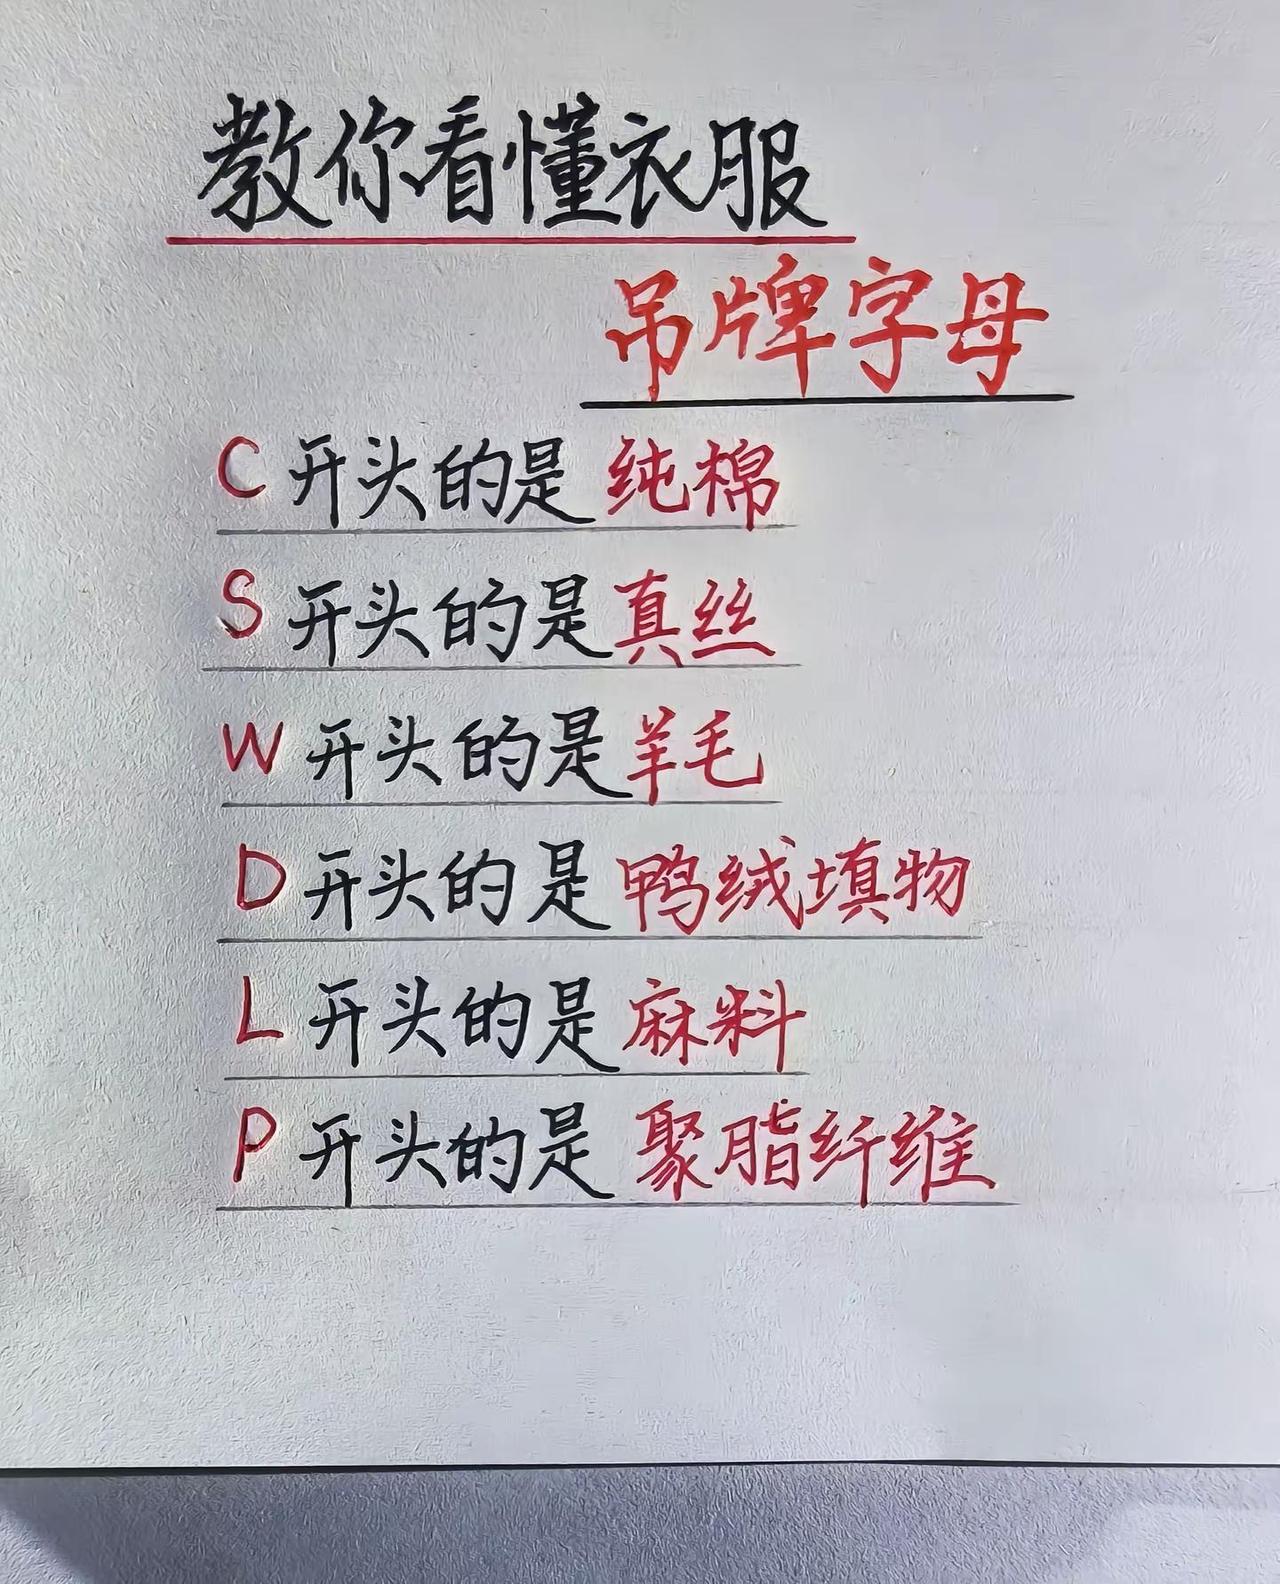 教你看懂衣服
吊牌字母
C开头的是纯棉
S开头的是真丝
W开头的是羊毛
D开头的是鸭绒填物
L开头的是麻料
P开头的是聚脂纤维